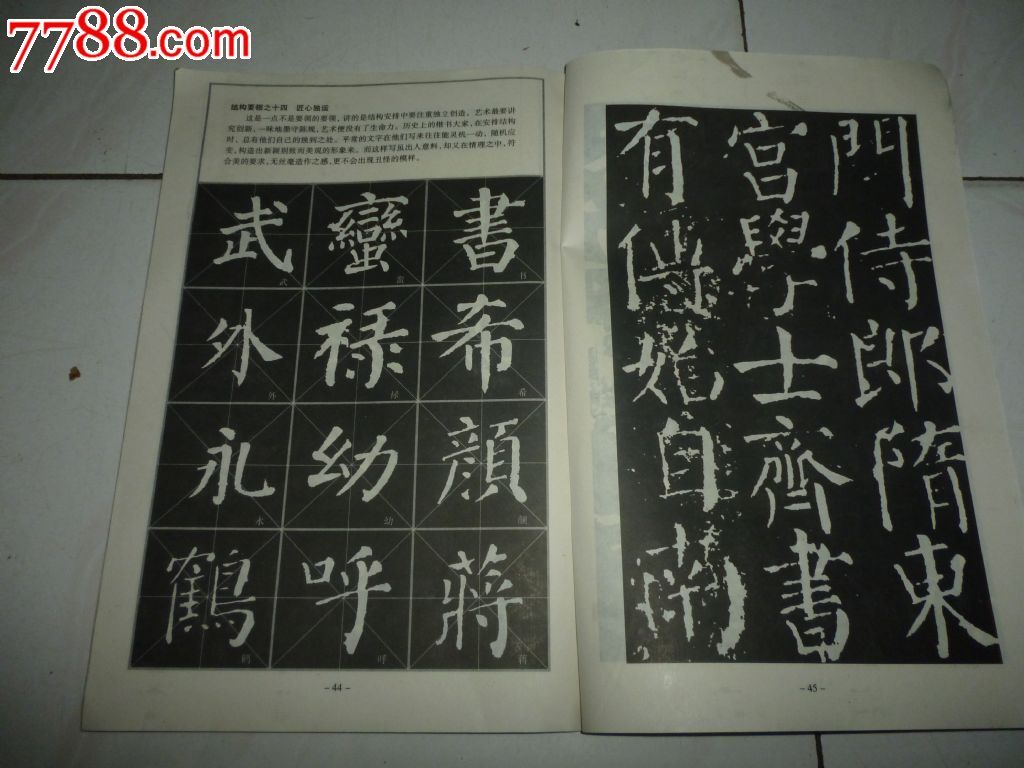 7788.com
中国收藏热线
结构要领之十四 匠心独运
这是一点不是要领的要领，讲的是结构安排中要注重独立创造。艺术最要讲
究创新，一味地墨守陈规，艺术便没有了生命力。历史上的楷书大家，在安排结构
时，总有他们自己的独到之处。平常的文字在他们写来往往能灵机一动、随机应
变，构造出新颖别致而美观的形象来。而这样写虽出人意料，却又在情理之中，符
合美的要求，无丝毫造作之感，更不会出现丑怪的模样。
書 蠻 武
书 蛮 武
希 禄 外
希 禄 外
顔 幼 永
颜 幼 永
蔣 呼 鶴
蒋 呼 鹤
- 44 -
門侍郎隋東
宮學士齊書
有傳始自南
- 45 -